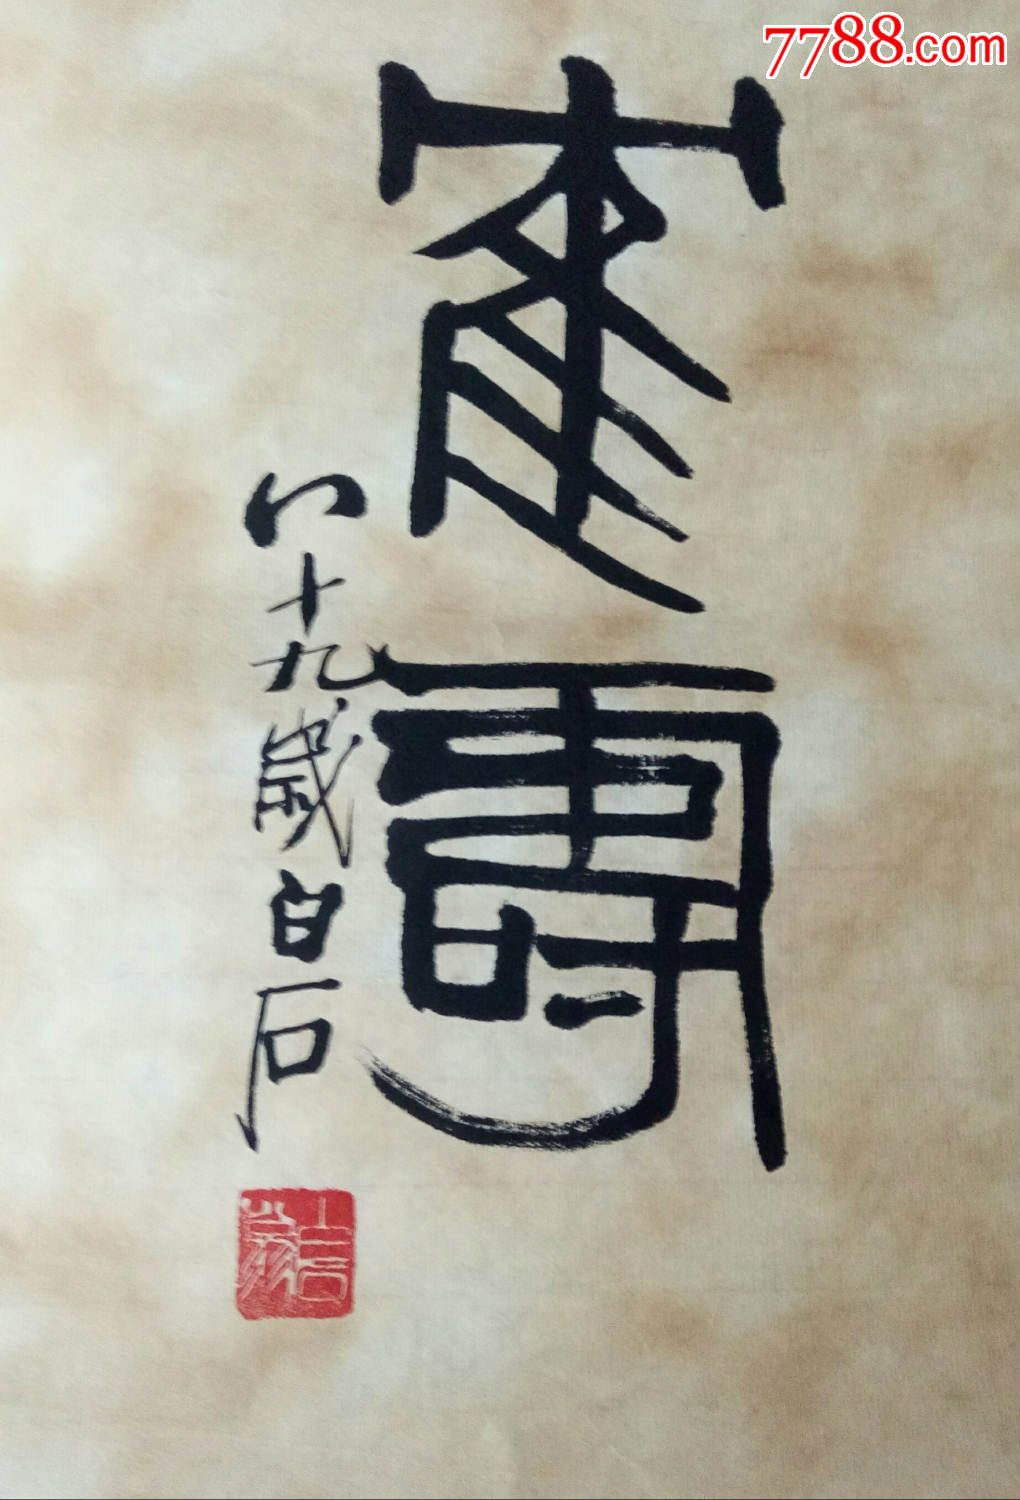 7788.com
隺壽
八十九歲白石